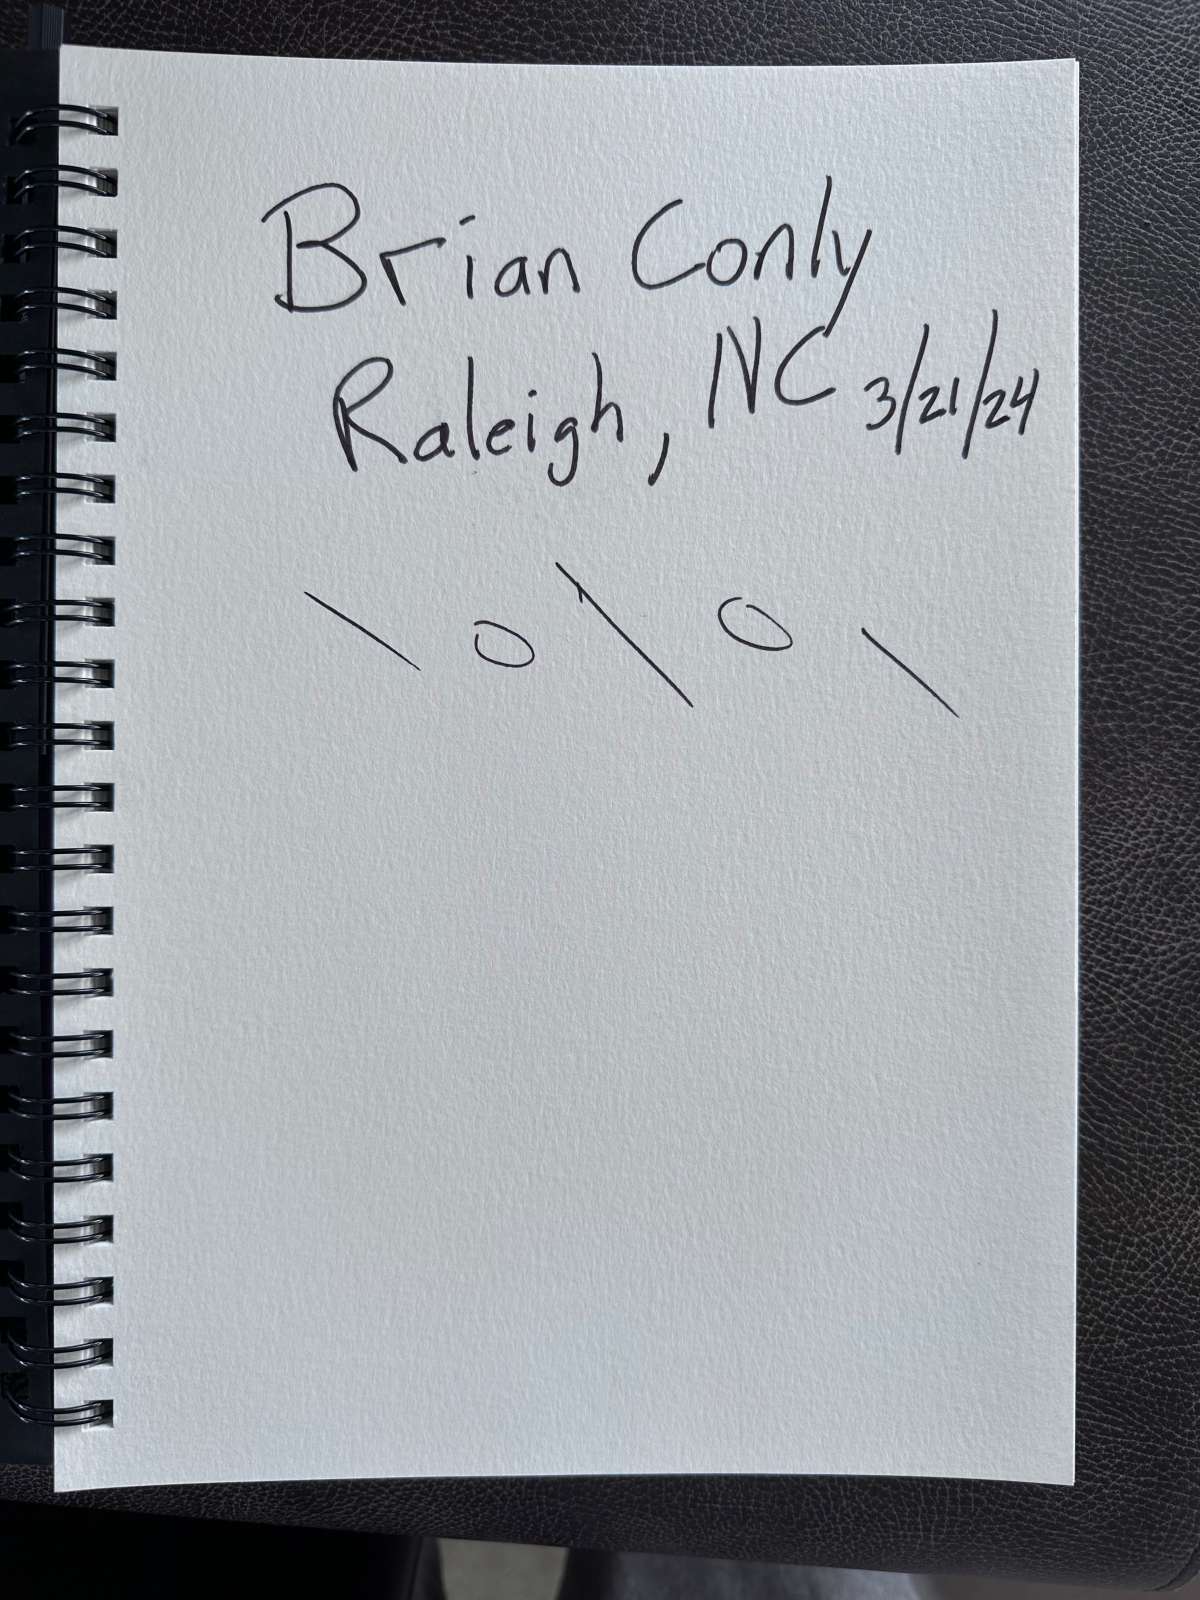 Brian Conly
Raleigh, NC 3/21/24
\ O \ O \